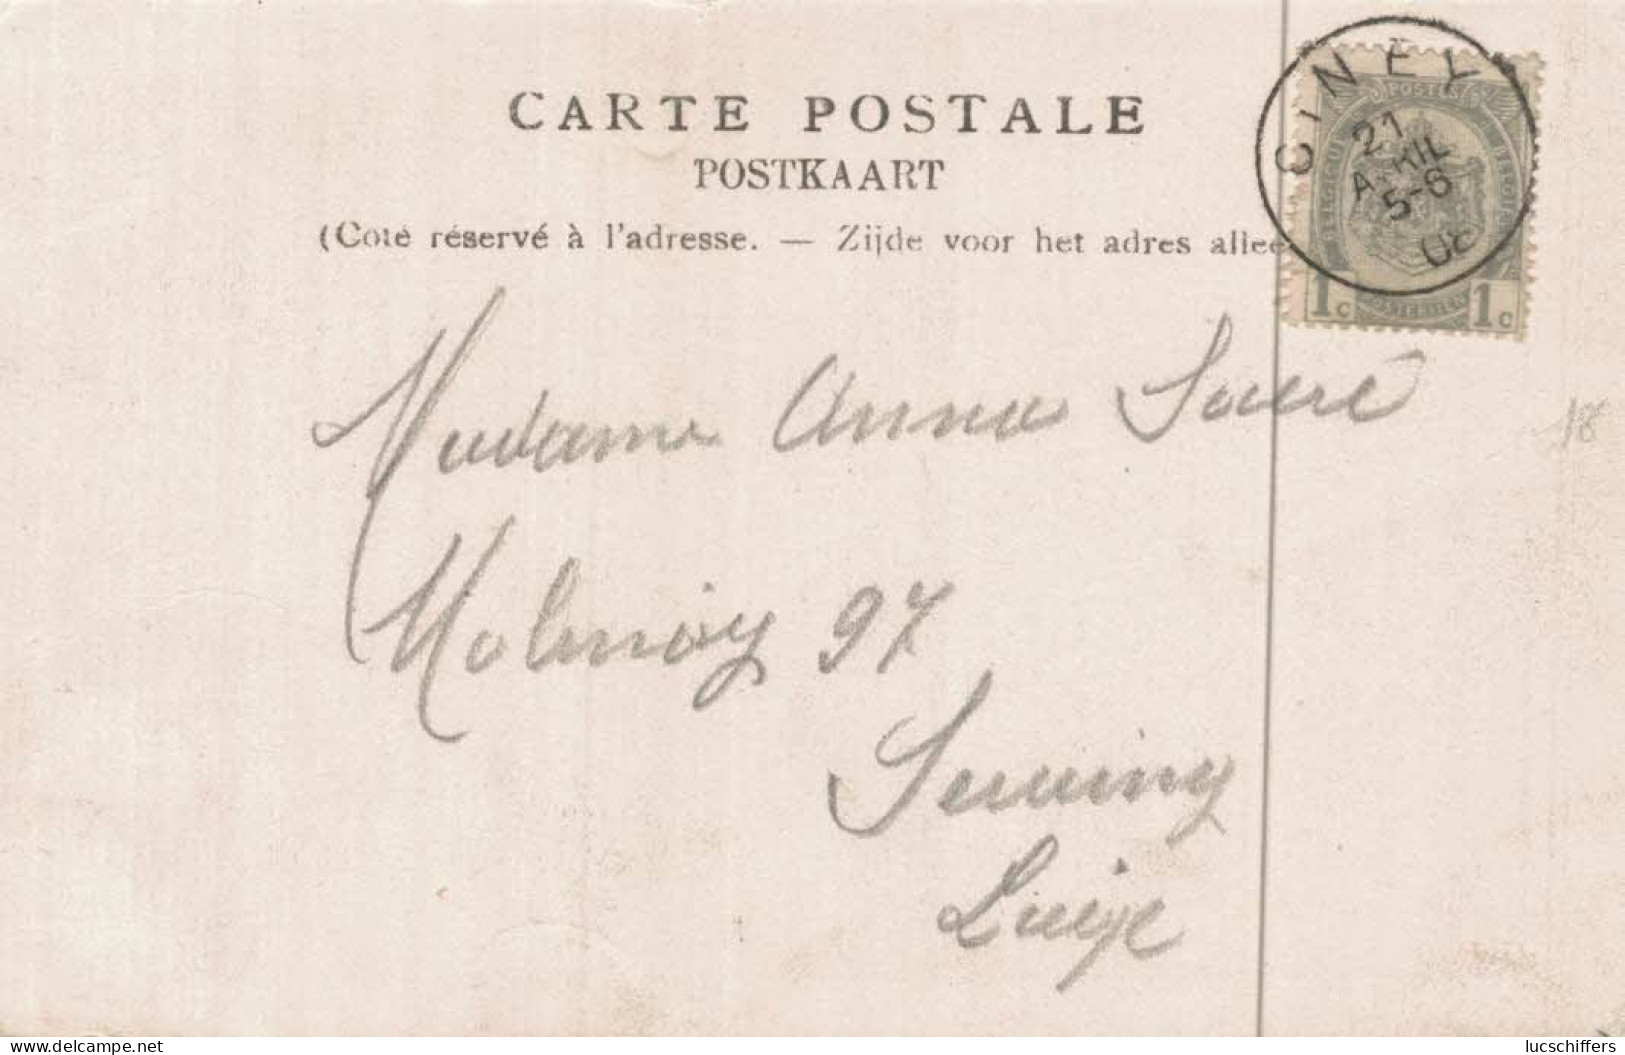 CARTE POSTALE
POSTKAART
(Coté réservé à l'adresse. — Zijde voor het adres allee
CINEY
21
AVRIL
5-6
08
POSTES
1c 1c
Madame Anna Sacré
Molinay 97
Seraing
Liège
18
delcampe.net
lucschiffers